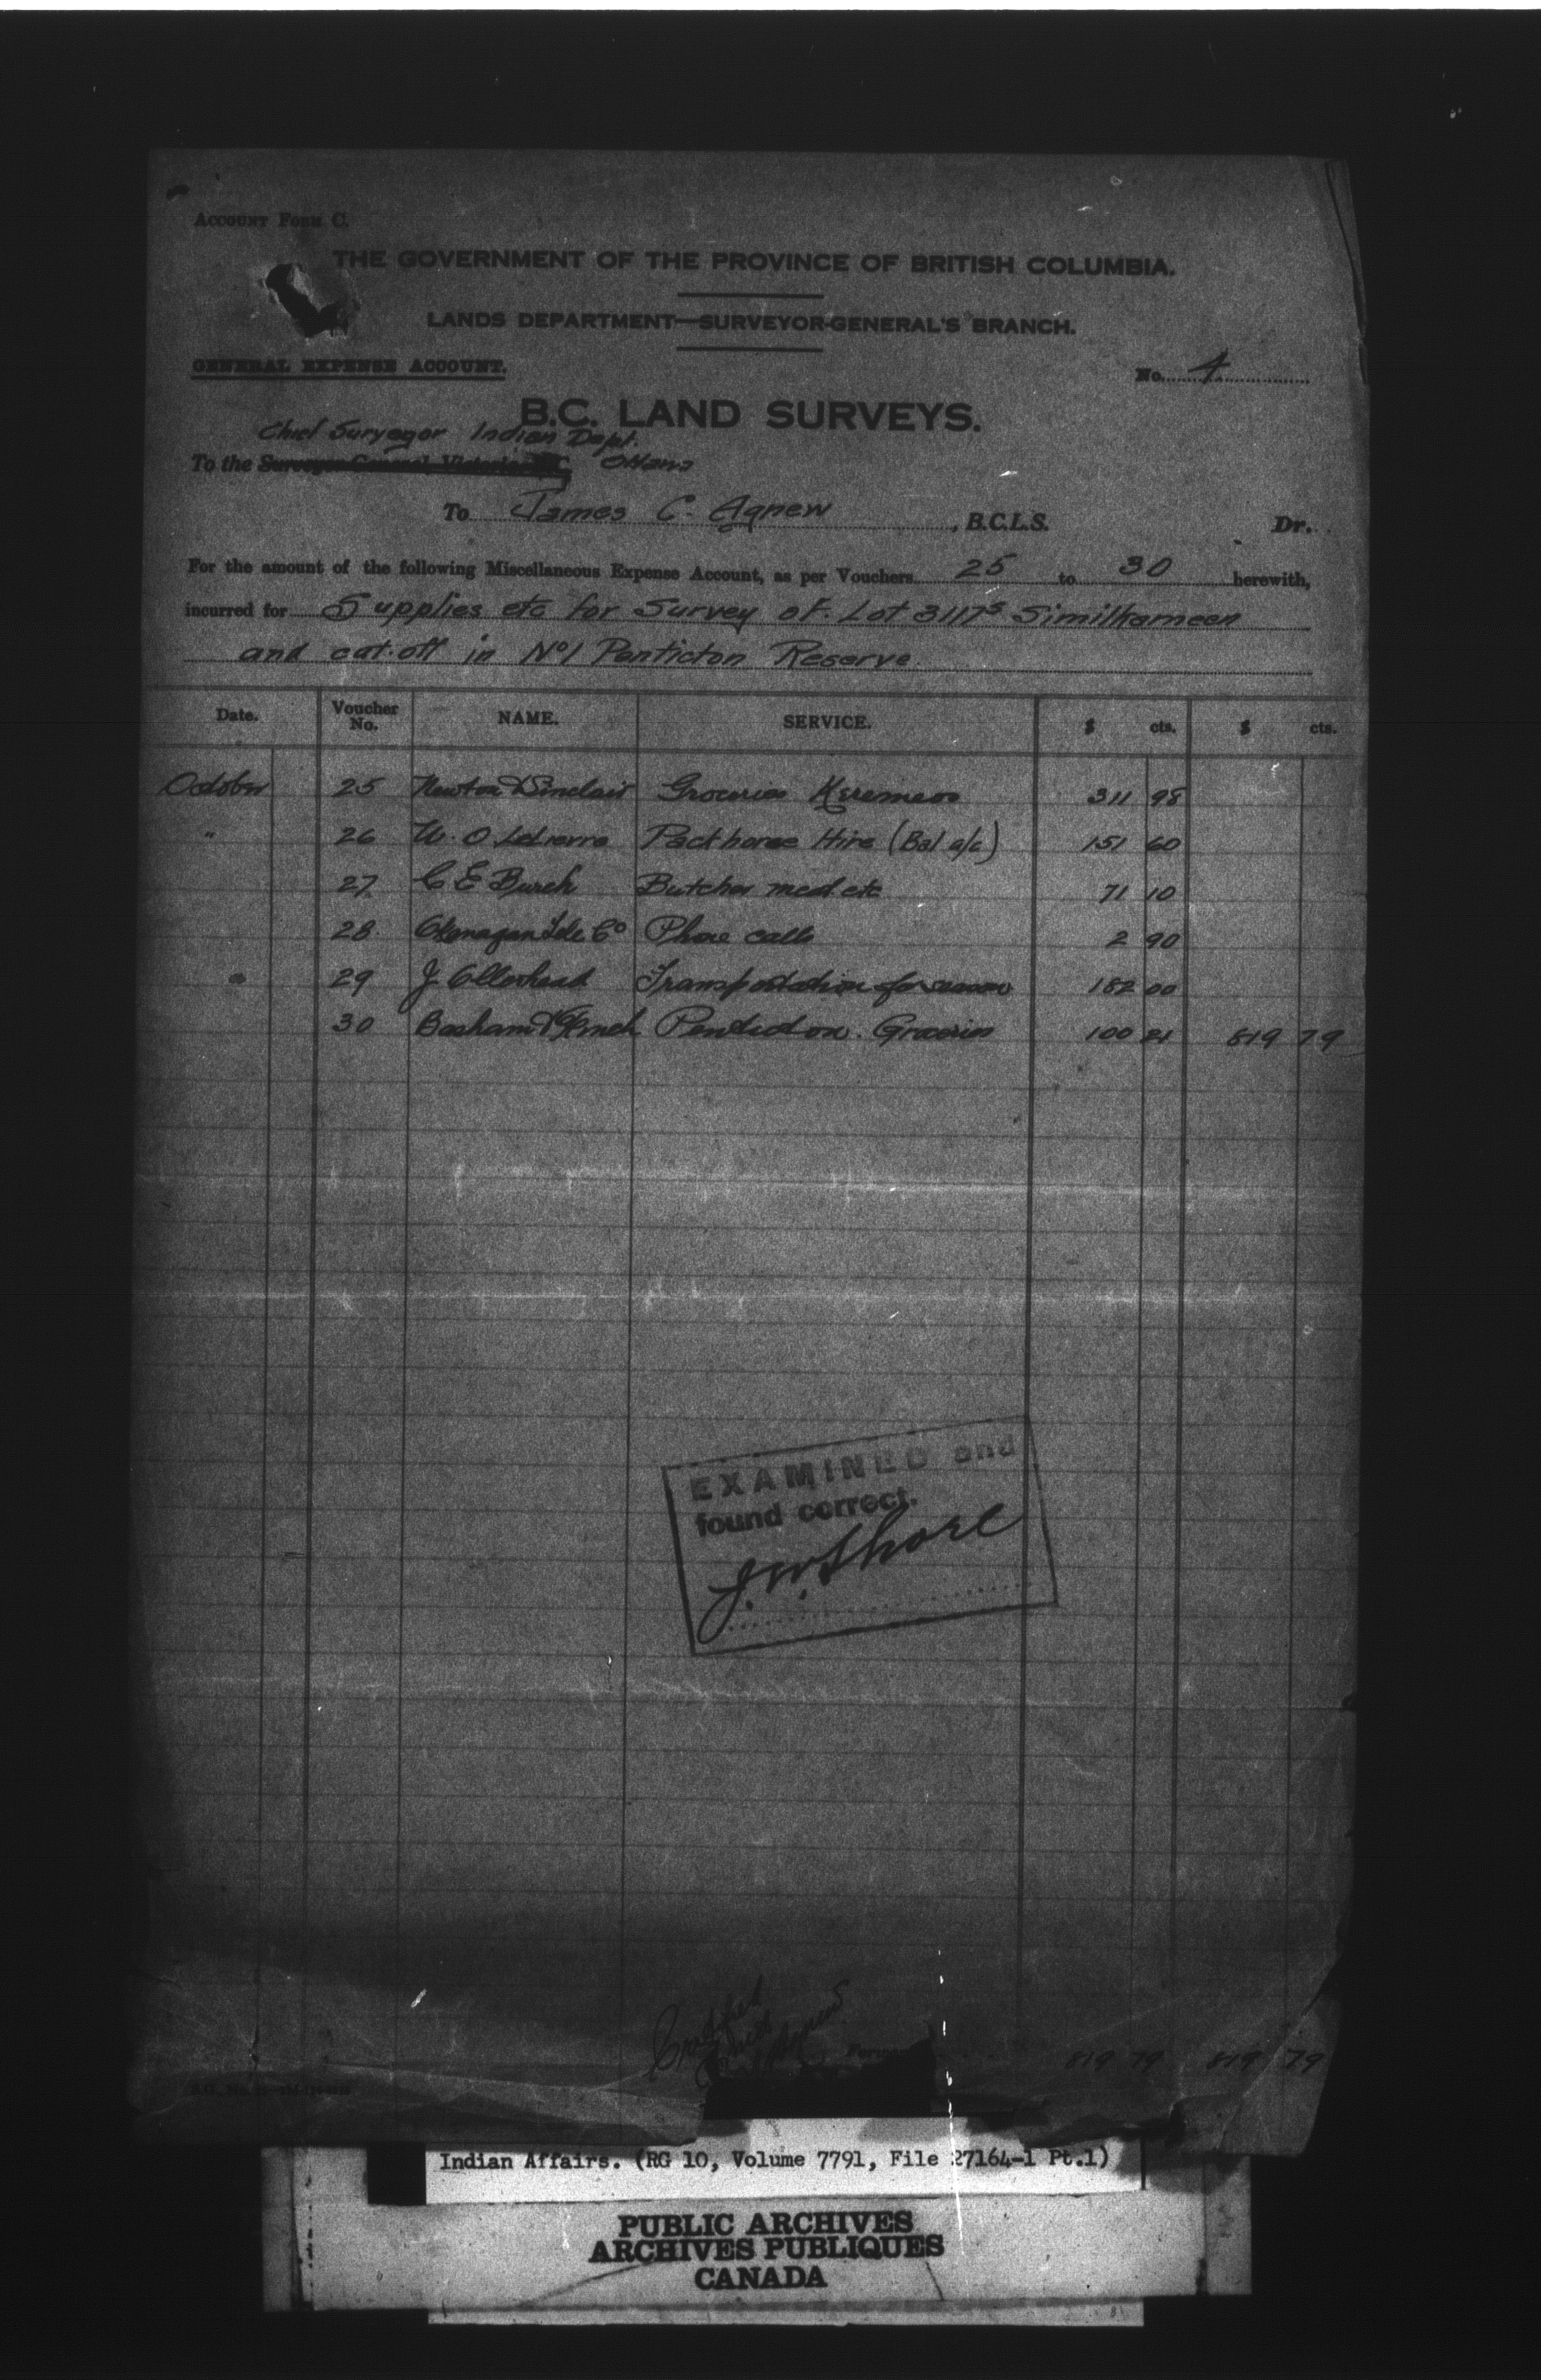 ACCOUNT FORM C.
THE GOVERNMENT OF THE PROVINCE OF BRITISH COLUMBIA.
LANDS DEPARTMENT—SURVEYOR-GENERAL'S BRANCH.
GENERAL EXPENSE ACCOUNT.
No. 4
B.C. LAND SURVEYS.
Chief Surveyor Indian Dept.
To the Surveyor-General, Victoria, B.C. Ottawa
To James C. Agnew, B.C.L.S. Dr.
For the amount of the following Miscellaneous Expense Account, as per Vouchers 25 to 30 herewith,
incurred for Supplies etc for Survey of Lot 3117s Similkameen
and cut-off in No 1 Penticton Reserve
Date. Voucher No. NAME. SERVICE. $ cts. $ cts.
October 25 Newton & Sinclair Groceries Keremeos 311 98
" 26 W. O. Packhorse Hire (Bal a/c) 151 60
27 C E Burch Butcher meat etc 71 10
28. Okanagan Tele Co Phone calls 2 90
29 J Ollerhead Transportation for season 182 00
30 Basham & Penticton. Groceries 100 21 819 79
EXAMINED and
found correct.
J. W. Shore
Certified
Correct
Agnew
819 79 819 79
Indian Affairs. (RG 10, Volume 7791, File 27164-1 Pt.1)
PUBLIC ARCHIVES
ARCHIVES PUBLIQUES
CANADA